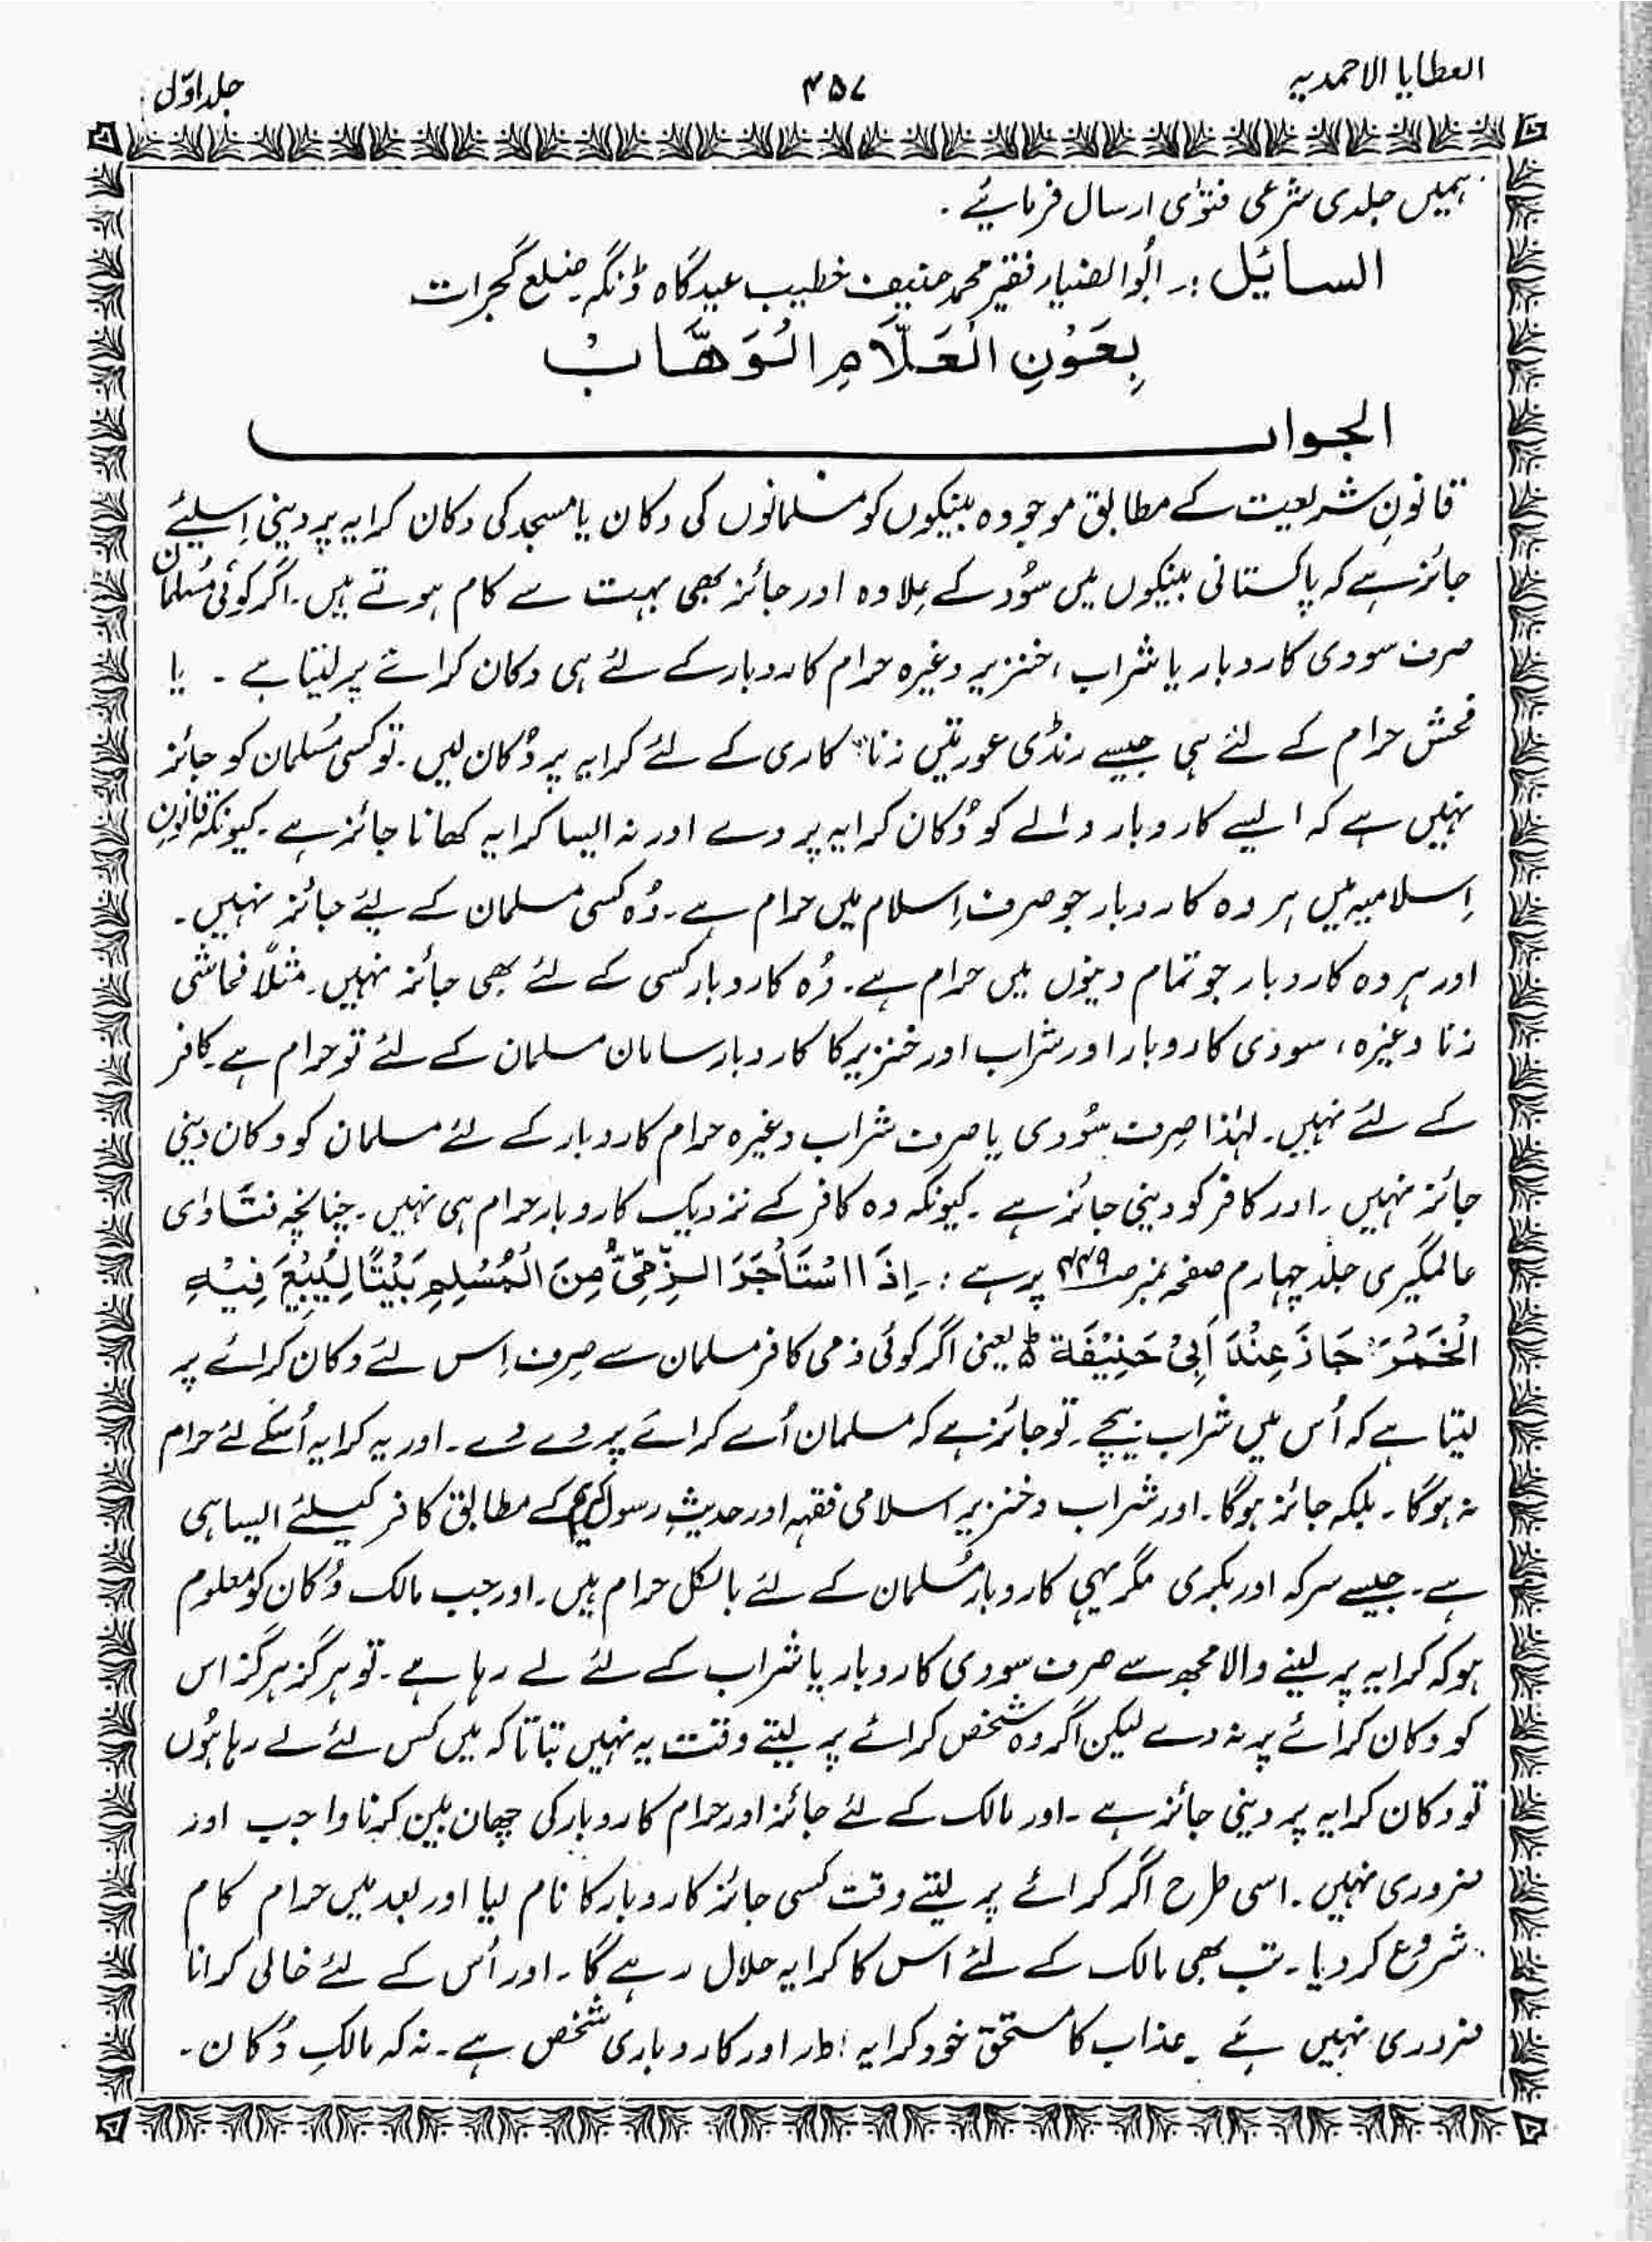 العطایا الاحمدیہ
۳۵۷
جلد اوّل
ہمیں جلدی شرعی فتوٰی ارسال فرمائیے ۔
السائِل :۔ ابُوالضیاء فقیر محمد حنیف خطیب عیدگاہ ڈنگہ ضلع گجرات
بِعَوْنِ الْعَلَّامِ الْوَهَّابْ
الجواب
قانونِ شریعت کے مطابق موجودہ بینکوں کو مسلمانوں کی دکان یا مسجد کی دکان کرایہ پر دینی اِسلیئے
جائز ہے کہ پاکستانی بینکوں میں سُود کے عِلاوہ اور جائز بھی بہت سے کام ہوتے ہیں۔ اگر کوئی مُسلمان
صرف سودی کاروبار یا شراب ، خنزیر وغیرہ حرام کاروبار کے لئے ہی دکان کرائے پر لیتا ہے ۔ یا
فحش حرام کے لئے ہی جیسے رنڈی عورتیں زنا کاری کے لئے کرایہ پر دُکان لیں۔ تو کسی مُسلمان کو جائز
نہیں ہے کہ ایسے کاروبار والے کو دُکان کرایہ پر دے اور نہ ایسا کرایہ کھانا جائز ہے۔ کیونکہ قانونِ
اِسلامیہ میں ہر وہ کاروبار جو صرف اِسلام میں حرام ہے۔ وُہ کسی مسلمان کے لیئے جائز نہیں۔
اور ہر وہ کاروبار جو تمام دینوں میں حرام ہے۔ وُہ کاروبار کسی کے لئے بھی جائز نہیں۔ مثلاً فحاشی
زنا وغیرہ ، سودی کاروبار اور شراب اور خنزیر کا کاروبار سامان مسلمان کے لئے تو حرام ہے۔ کافر
کے لئے نہیں۔ لہٰذا صِرف سُودی یا صرف شراب وغیرہ حرام کاروبار کے لئے مسلمان کو دکان دینی
جائز نہیں ۔ اور کافر کو دینی جائز ہے ۔ کیونکہ وہ کافر کے نزدیک کاروبار حرام ہی نہیں۔ چنانچہ فتاوٰی
عالمگیری جلد چہارم صفحہ نمبر صـ۴۴۹ پر ہے :۔ اِذَا اسْتَأْجَرَ الذِّمِّیُّ مِنَ الْمُسْلِمِ بَیْتًا لِیَبِیْعَ فِیْهِ
الْخَمْرَ جَازَ عِنْدَ اَبِیْ حَنِیْفَة ؕ یعنی اگر کوئی ذمی کافر مسلمان سے صِرف اِس لئے دکان کرائے پر
لیتا ہے کہ اُس میں شراب بیچے۔ تو جائز ہے کہ مسلمان اُسے کرائے پر دے دے۔ اور یہ کرایہ اُسکے لئے حرام
نہ ہوگا۔ بلکہ جائز ہوگا۔ اور شراب و خنزیر اسلامی فقہہ اور حدیثِ رسول کریم کے مطابق کافر کیلئے ایسا ہی
ہے۔ جیسے سرکہ اور بکری مگر یہی کاروبار مُسلمان کے لئے بالکل حرام ہیں۔ اور جب مالک دُکان کو معلوم
ہو کہ کرایہ پر لینے والا مجھ سے صرف سودی کاروبار یا شراب کے لئے لے رہا ہے۔ تو ہرگز ہرگز اس
کو دکان کرائے پر نہ دے لیکن اگر وہ شخص کرائے پر لیتے وقت یہ نہیں بتاتا کہ میں کس لئے لے رہا ہُوں
تو دکان کرایہ پر دینی جائز ہے ۔ اور مالک کے لئے جائز اور حرام کاروبار کی چھان بین کرنا واجب اور
ضروری نہیں۔ اسی طرح اگر کرائے پر لیتے وقت کسی جائز کاروبار کا نام لیا اور بعد میں حرام کام
شروع کر دیا۔ تب بھی مالک کے لئے اس کا کرایہ حلال رہے گا۔ اور اُس کے لئے خالی کرانا
ضروری نہیں ہے ۔ عذاب کا مستحق خود کرایہ دار اور کاروباری شخص ہے۔ نہ کہ مالکِ دُکان۔